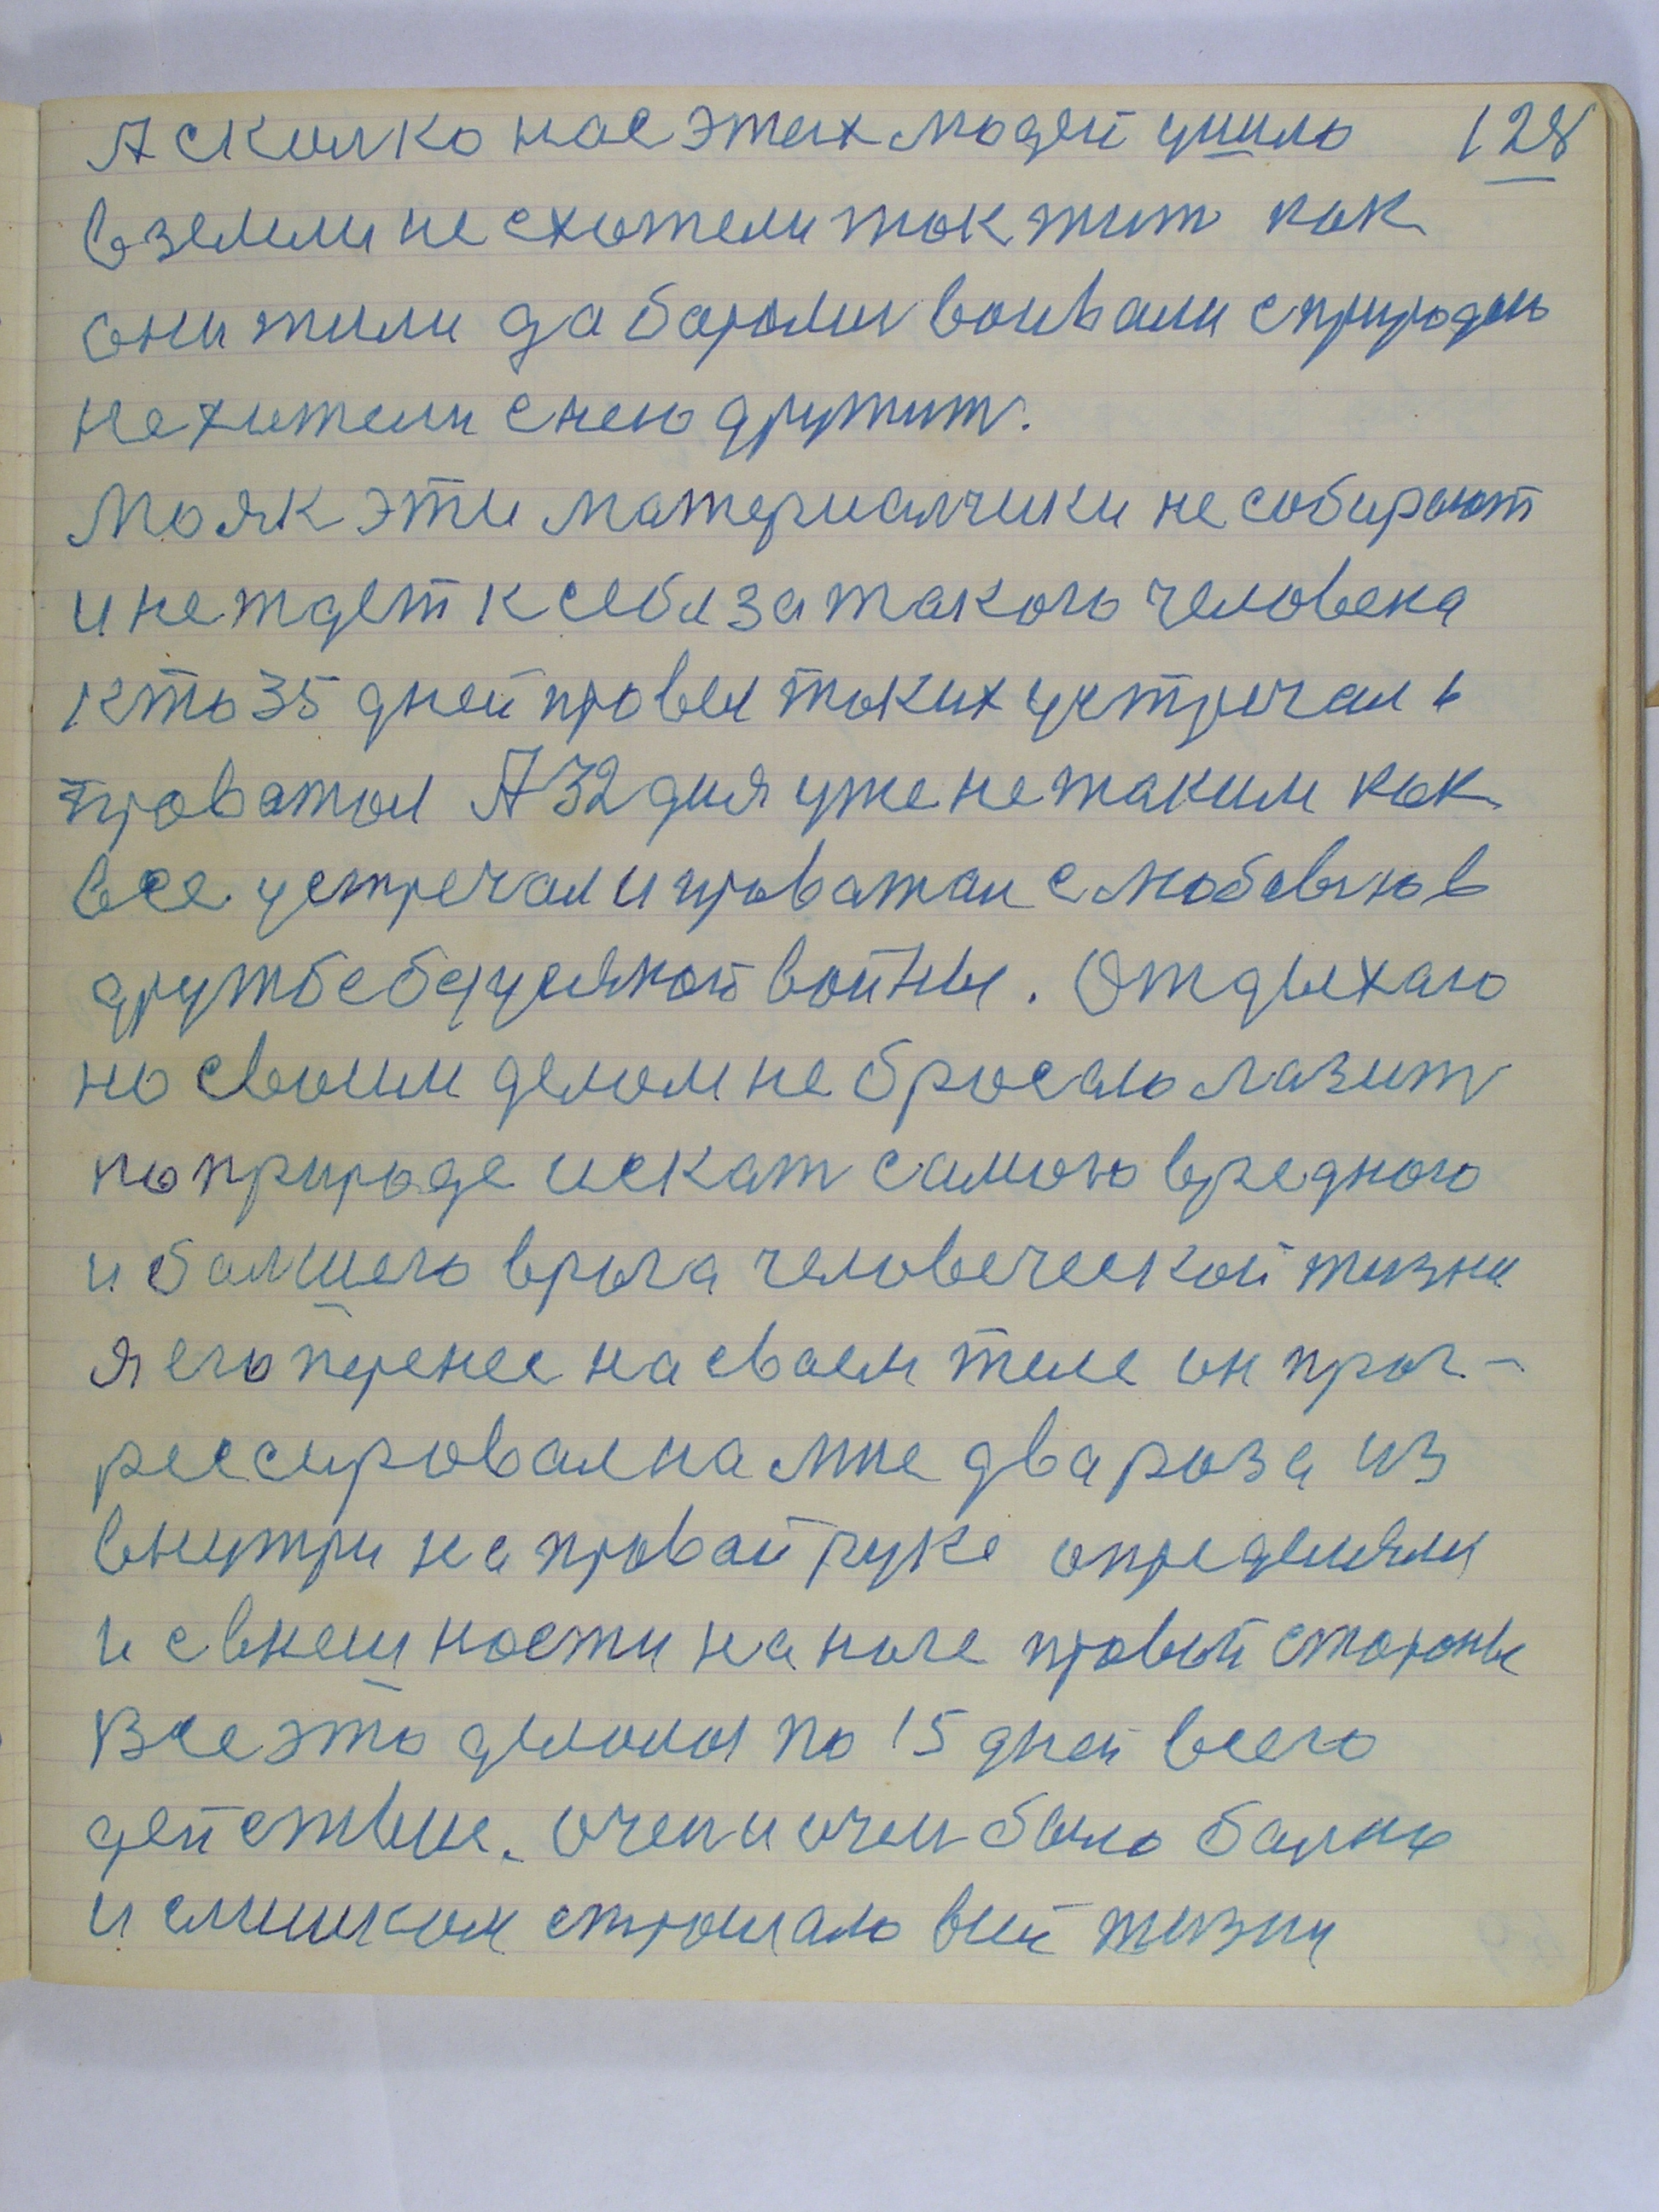 А сколко нас этих людей ушло 128
в земли не схотели так жит как
они жили да баролис воивали с природою
не хотели с нею дружит.
Маяк эти материалчики не собирают
и не ждет к себя за такого человека
кто 35 дней провел таких устречал и
проважал А 32 дня уже не таким как
все устречал и проважал с любовью в
дружбе без усякой войны. Отдыхаю
но своим делом не бросаю лазит
по природе искат самого вредного
и балшего врага человеческой жизни
я его перенес на своем теле он прог-
рессировал на мне два раза из
внутри на правай руке определял
и с внешности на ноге правой стороны
Все это делалос по 15 дней всего
действие. очен и очен было бално
и слишком страшно в жизни